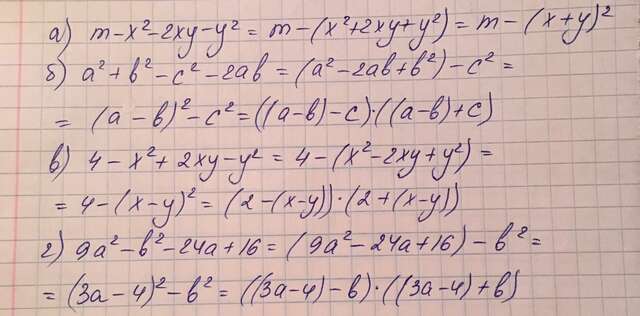 а) m-x²-2xy-y² = m-(x²+2xy+y²) = m-(x+y)²
б) a²+b²-c²-2ab = (a²-2ab+b²)-c² =
= (a-b)²-c² = ((a-b)-c)·((a-b)+c)
в) 4-x²+2xy-y² = 4-(x²-2xy+y²) =
= 4-(x-y)² = (2-(x-y))·(2+(x-y))
г) 9a²-b²-24a+16 = (9a²-24a+16)-b² =
= (3a-4)²-b² = ((3a-4)-b)·((3a-4)+b)